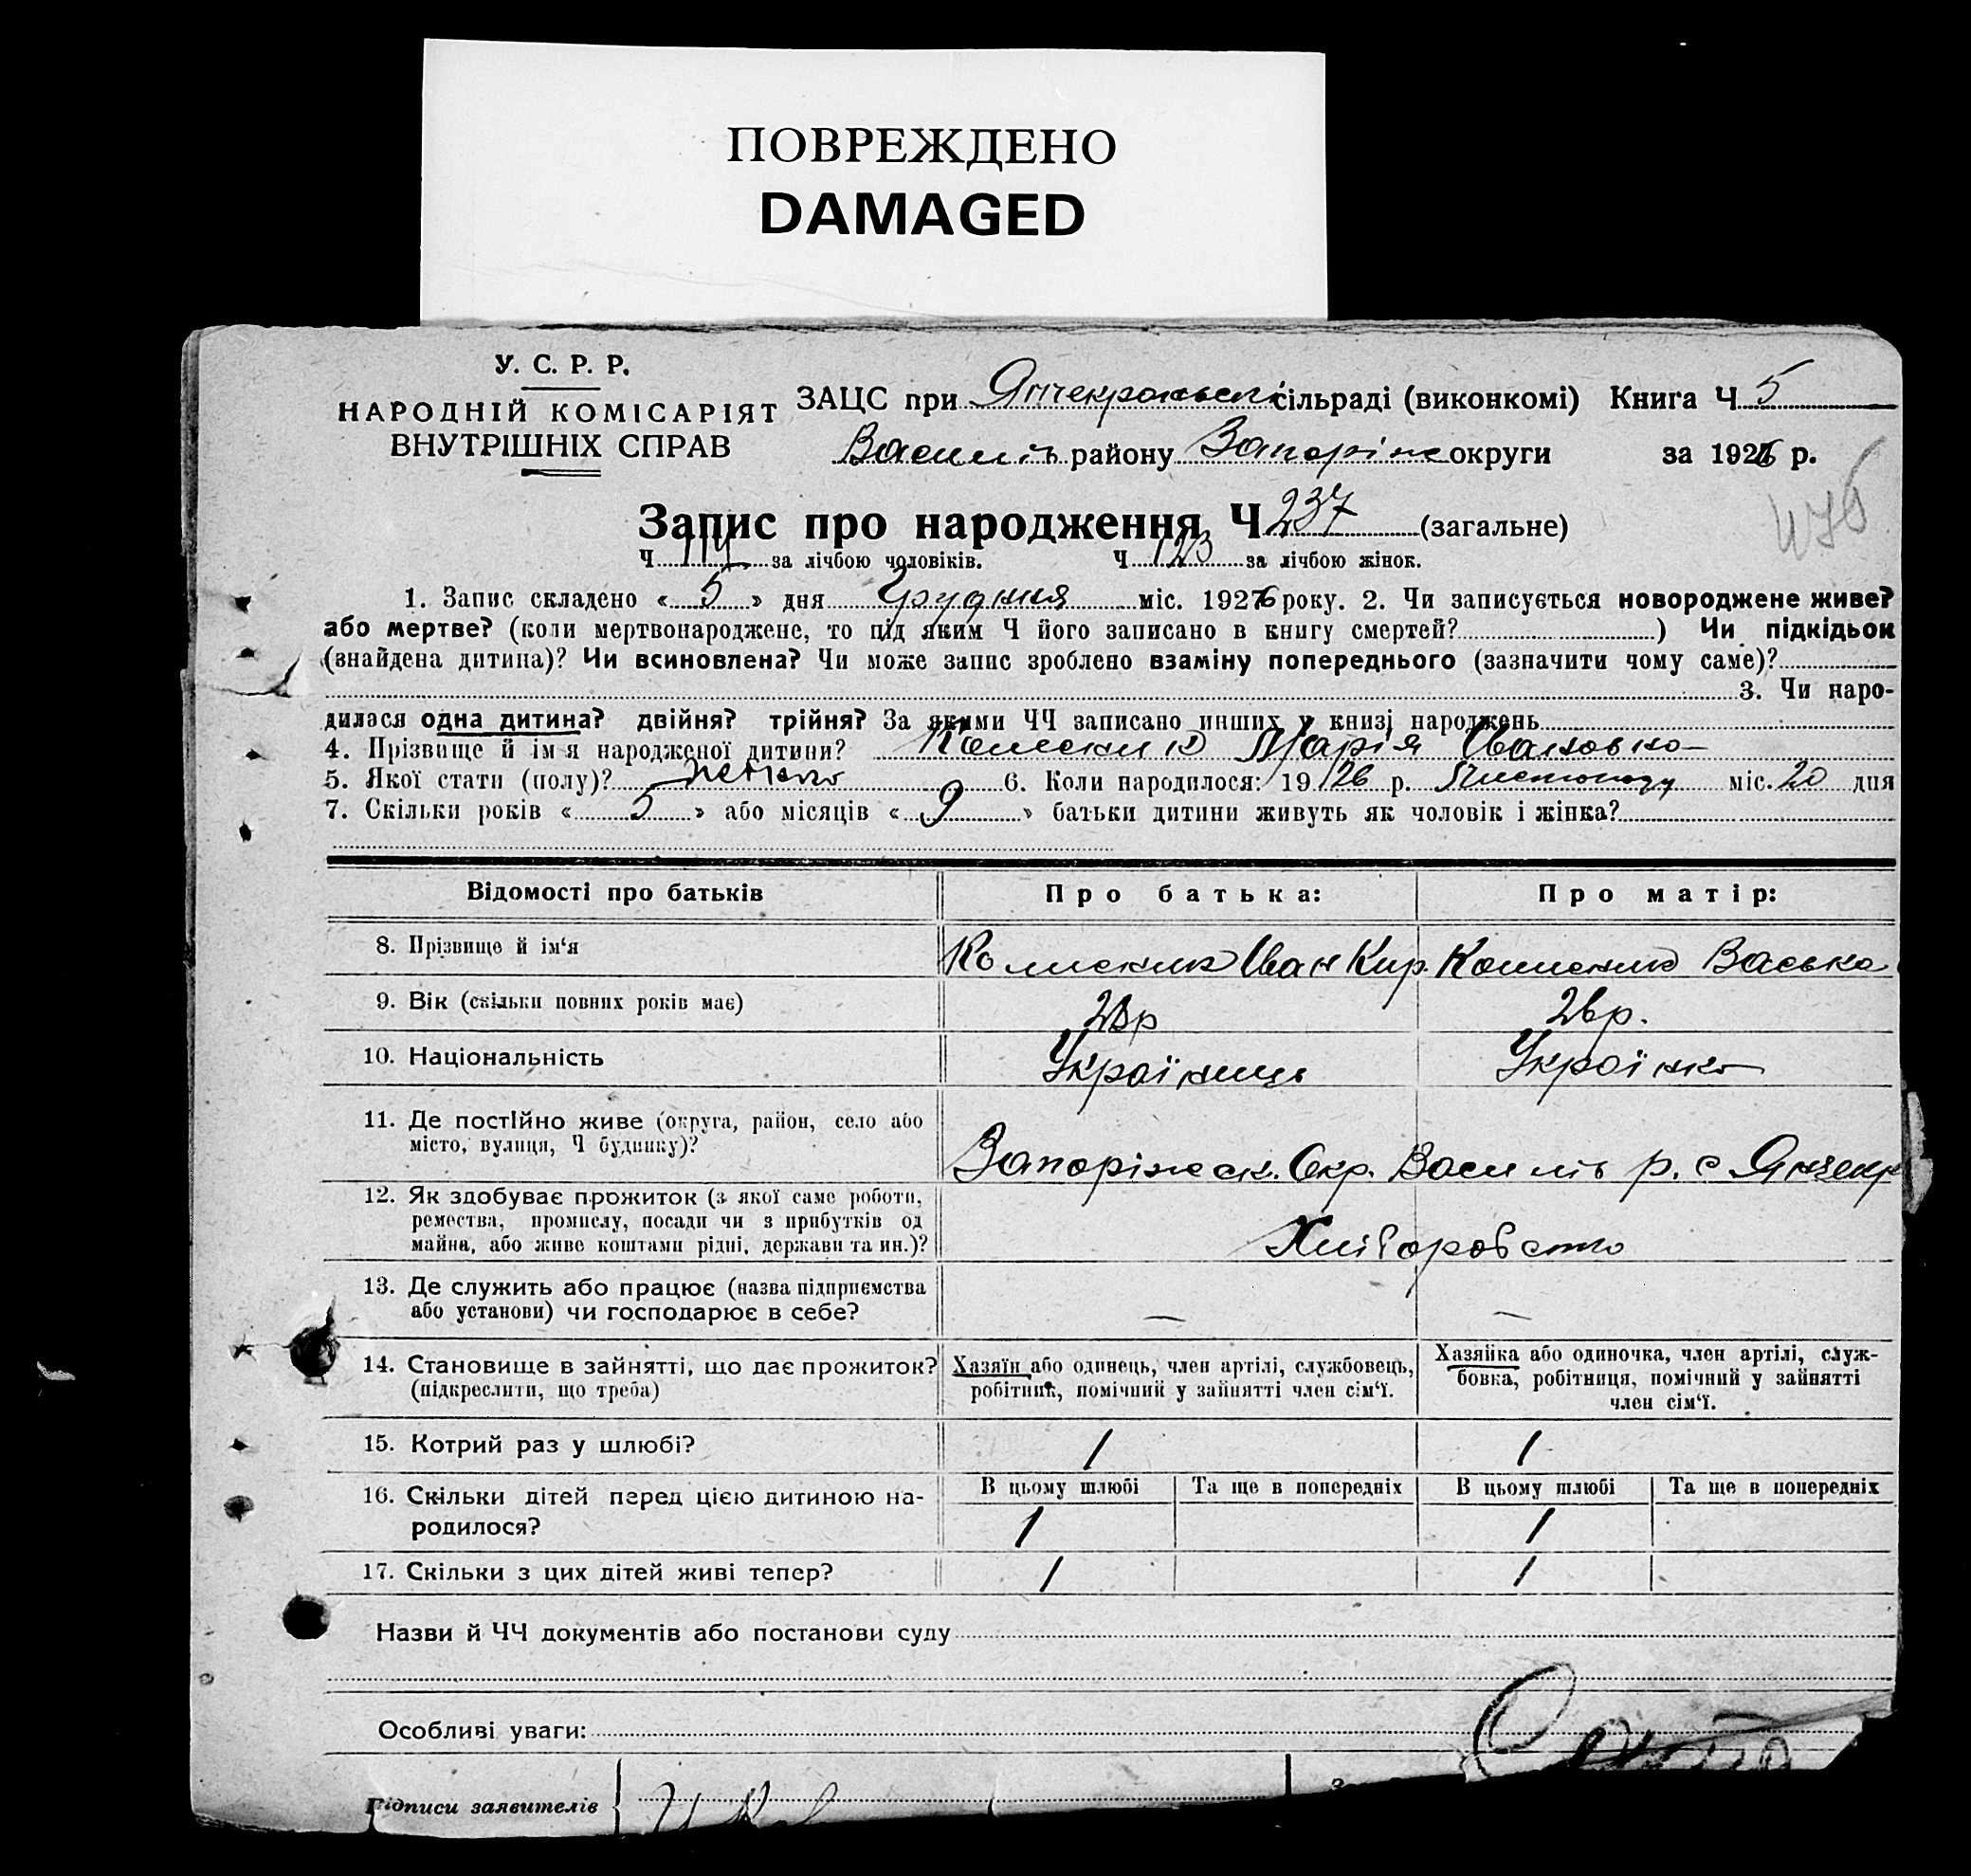 ПОВРЕЖДЕНО
DAMAGED
У. С. Р. Р.
НАРОДНІЙ КОМІСАРІЯТ
ВНУТРІШНІХ СПРАВ
ЗАЦС при Янчекракській сільраді (виконкомі) Книга Ч 5
Василів району Запоріж округи за 1926 р.
Запис про народження Ч 237 (загальне)
Ч 114 за лічбою чоловіків. Ч 123 за лічбою жінок.
1. Запис складено « 5 » дня Грудня міс. 1926 року. 2. Чи записується новороджене живе?
або мертве? (коли мертвонароджене, то під яким Ч його записано в книгу смертей? ) Чи підкідьок
(знайдена дитина)? Чи всиновлена? Чи може запис зроблено взаміну попереднього (зазначити чому саме)?
3. Чи наро-
дилася одна дитина? двійня? трійня? За якими ЧЧ записано инших у книзі народжень
4. Прізвище й ім'я народженої дитини? Марія Івановна
5. Якої стати (полу)? 6. Коли народилося: 1926 р. Листопаду міс. 20 дня
7. Скільки років « 5 » або місяців « 9 » батьки дитини живуть як чоловік і жінка?
Відомості про батьків Про батька: Про матір:
8. Прізвище й ім'я Іван Кир. Васька
9. Вік (скільки повних років має) 26р.
10. Національність Українець Українка
11. Де постійно живе (округа, район, село або
місто, вулиця, Ч будинку)?
Запоріжск. Окр. Василів р. с Янчекр
12. Як здобуває прожиток (з якої саме роботи,
ремества, промислу, посади чи з прибутків од
майна, або живе коштами рідні, держави та ин.)?
Хліборобство
13. Де служить або працює (назва підприємства
або установи) чи господарює в себе? — —
14. Становище в зайнятті, що дає прожиток?
(підкреслити, що треба)
Хазяїн або одинець, член артілі, службовець,
робітник, помічний у зайнятті член сім'ї.
Хазяйка або одиночка, член артілі, служ-
бовка, робітниця, помічний у зайнятті
член сім'ї.
15. Котрий раз у шлюбі? 1 1
16. Скільки дітей перед цією дитиною на-
родилося?
В цьому шлюбі Та ще в попередніх В цьому шлюбі Та ще в попередніх
1 1
17. Скільки з цих дітей живі тепер? 1 1
Назви й ЧЧ документів або постанови суду
Особливі уваги:
Підписи заявителів